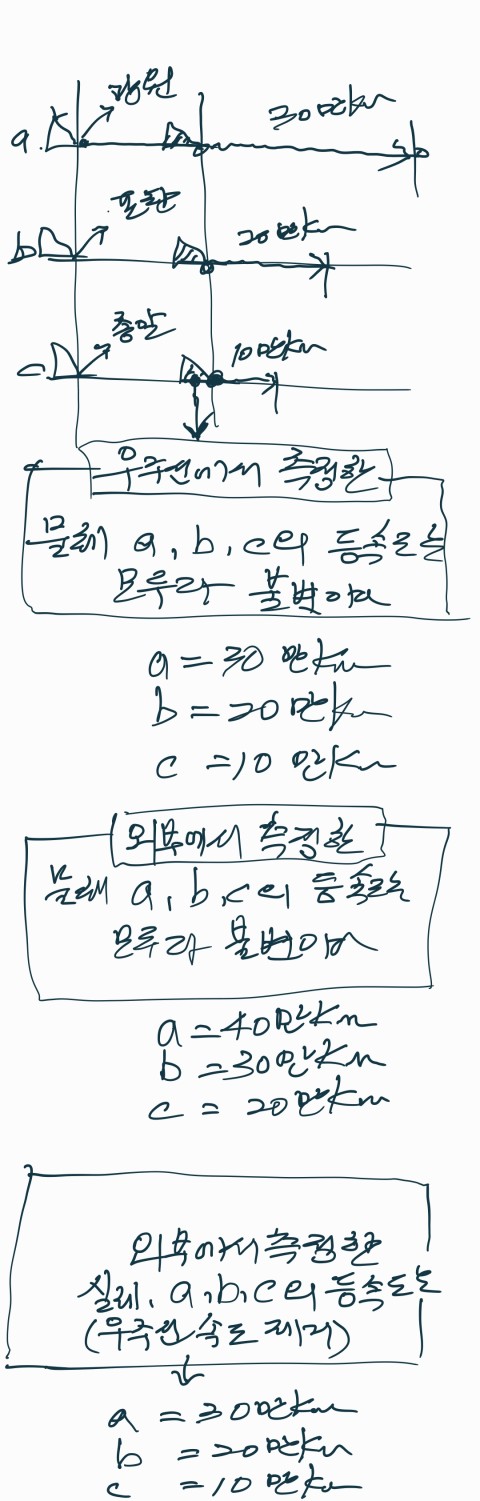 a. 광원 30만km
b 포환 20만km
c 총알 10만km
우주선에서 측정한
물체 a, b, c의 등속도는
모두 다 불변이며
a = 30 만km
b = 20만km
c = 10 만km
외부에서 측정한
물체 a, b, c의 등속도는
모두 다 불변이며
a = 40만km
b = 30만km
c = 20만km
외부에서 측정한
실체, a, b, c의 등속도는
(우주선 속도 제거)
a = 30만km
b = 20만km
c = 10만km